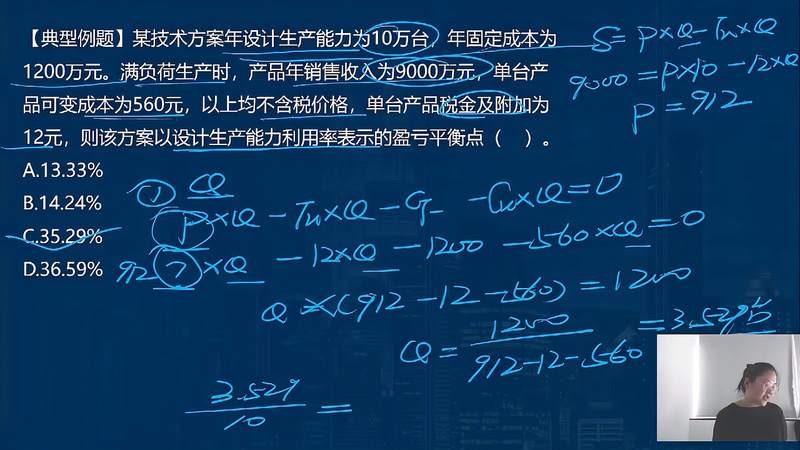 【典型例题】某技术方案年设计生产能力为10万台，年固定成本为
1200万元。满负荷生产时，产品年销售收入为9000万元，单台产
品可变成本为560元，以上均不含税价格，单台产品税金及附加为
12元，则该方案以设计生产能力利用率表示的盈亏平衡点（ ）。
A.13.33%
B.14.24%
C.35.29%
D.36.59%
S=P×Q-Tu×Q
9000=P×10-12×Q
P=912
① Q
P×Q-Tu×Q-CF-Cu×Q=0
912 ?×Q-12×Q-1200-560×Q=0
Q×(912-12-560)=1200
Q=1200/912-12-560=3.529万
3.529/10=